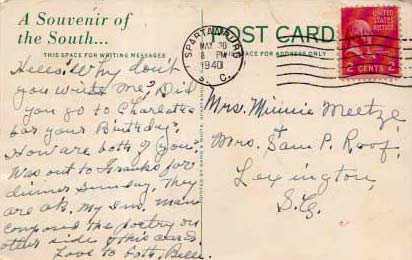 A Souvenir of
the South...
THIS SPACE FOR WRITING MESSAGES
Hello! Why don't
you write me? Did
you go to Charlotte
for your Birthday?
How are both of you?
Was out to Franks for
dinner Sunday. They
are ok. My Ins. man
composed the poetry on
other side of this card.
Love to both, Belle.
POST CARD
SPACE FOR ADDRESS ONLY
SPARTANBURG
MAY 30
8 PM
1940
S. C.
UNITED STATES
POSTAGE
2 CENTS 2
Mrs. Minnie Meetze
+
Mrs. Sam P. Roof,
Lexington,
S.C.